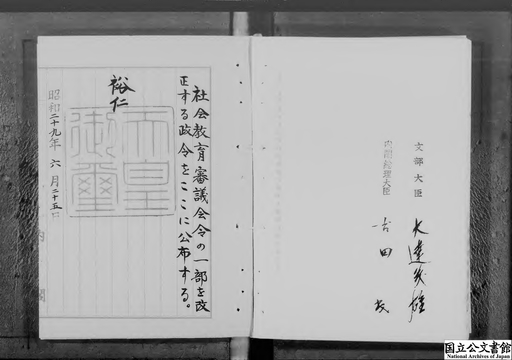 社会教育審議会令の一部を改
正する政令をここに公布する。
裕仁
天皇
御璽
昭和二十九年六月二十五日
内閣
文部大臣
大達茂雄
内閣総理大臣
吉田茂
国立公文書館
National Archives of Japan